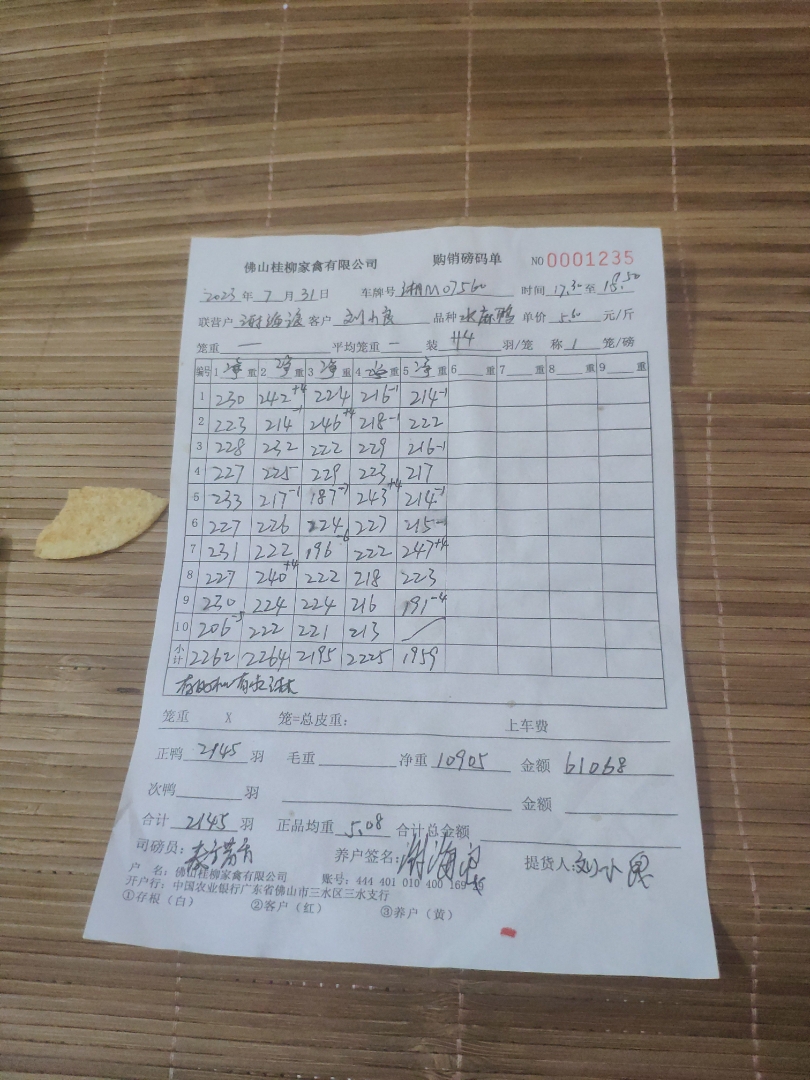 佛山桂柳家禽有限公司 购销磅码单 NO 0001235
2023年 7月 31日 车牌号 湘M07560 时间 17.30 至 18.50
联营户 客户 刘小良 品种 水麻鸭 单价 5.60 元/斤
笼重 一 平均笼重 一 装 #4 羽/笼 称 1 笼/磅
编号 1 净 重 2 净 重 3 净 重 4 净 重 5 净 重 6 重 7 重 8 重 9 重
1 230 242+4 224 216-1 214-1
2 223 214-1 246+4 218-1 222
3 228 232 222 229 216-1
4 227 225 229 223 217
5 233 217-1 187-7 243+4 214-1
6 227 226 224 227 215-1
7 231 222 196-6 222 247+4
8 227 240+4 222 218 223
9 230 224 224 216 191-4
10 206-5 222 221 213 /
小计 2262 2264 2195 2225 1959
笼重 X 笼=总皮重: 上车费
正鸭 2145 羽 毛重 净重 10905 金额 61068
次鸭 羽 金额
合计 2145 羽 正品均重 5.08 合计总金额
司磅员: 养户签名: 提货人: 刘小良
户 名: 佛山桂柳家禽有限公司 账号: 444 401 010 400 169
开户行: 中国农业银行广东省佛山市三水区三水支行
①存根（白） ②客户（红） ③养户（黄）